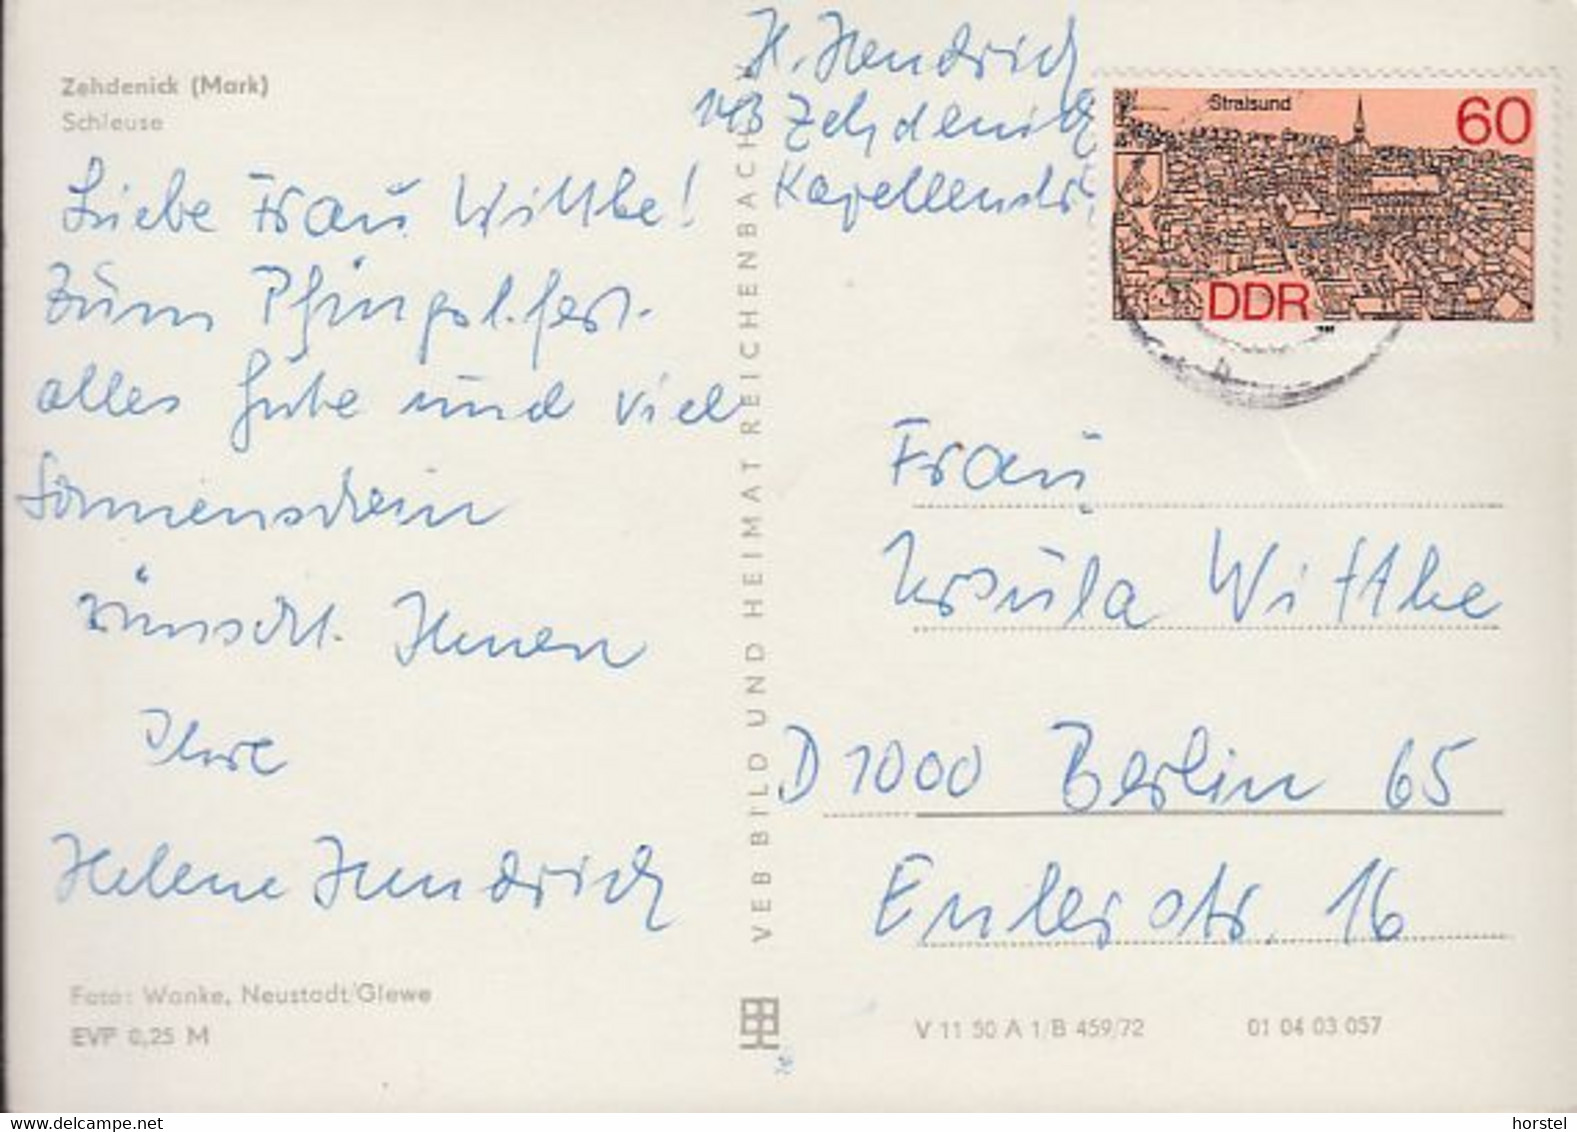 Zehdenick (Mark)
Schleuse
Liebe Frau Wittke!
Zum Pfingstfest
alles Gute und viel
Sonnenschein
wünscht Ihnen
Ihre
Helene Hendrich
Foto: Wanke, Neustadt/Glewe
EVP 0,25 M
VEB BILD UND HEIMAT REICHENBACH
H. Hendrich
143 Zehdenick
Stralsund
60
DDR
Frau
Ursula Wittke
D 1000 Berlin 65
Eulerstr. 16
V 11 50 A 1/B 459/72
01 04 03 057
horstel